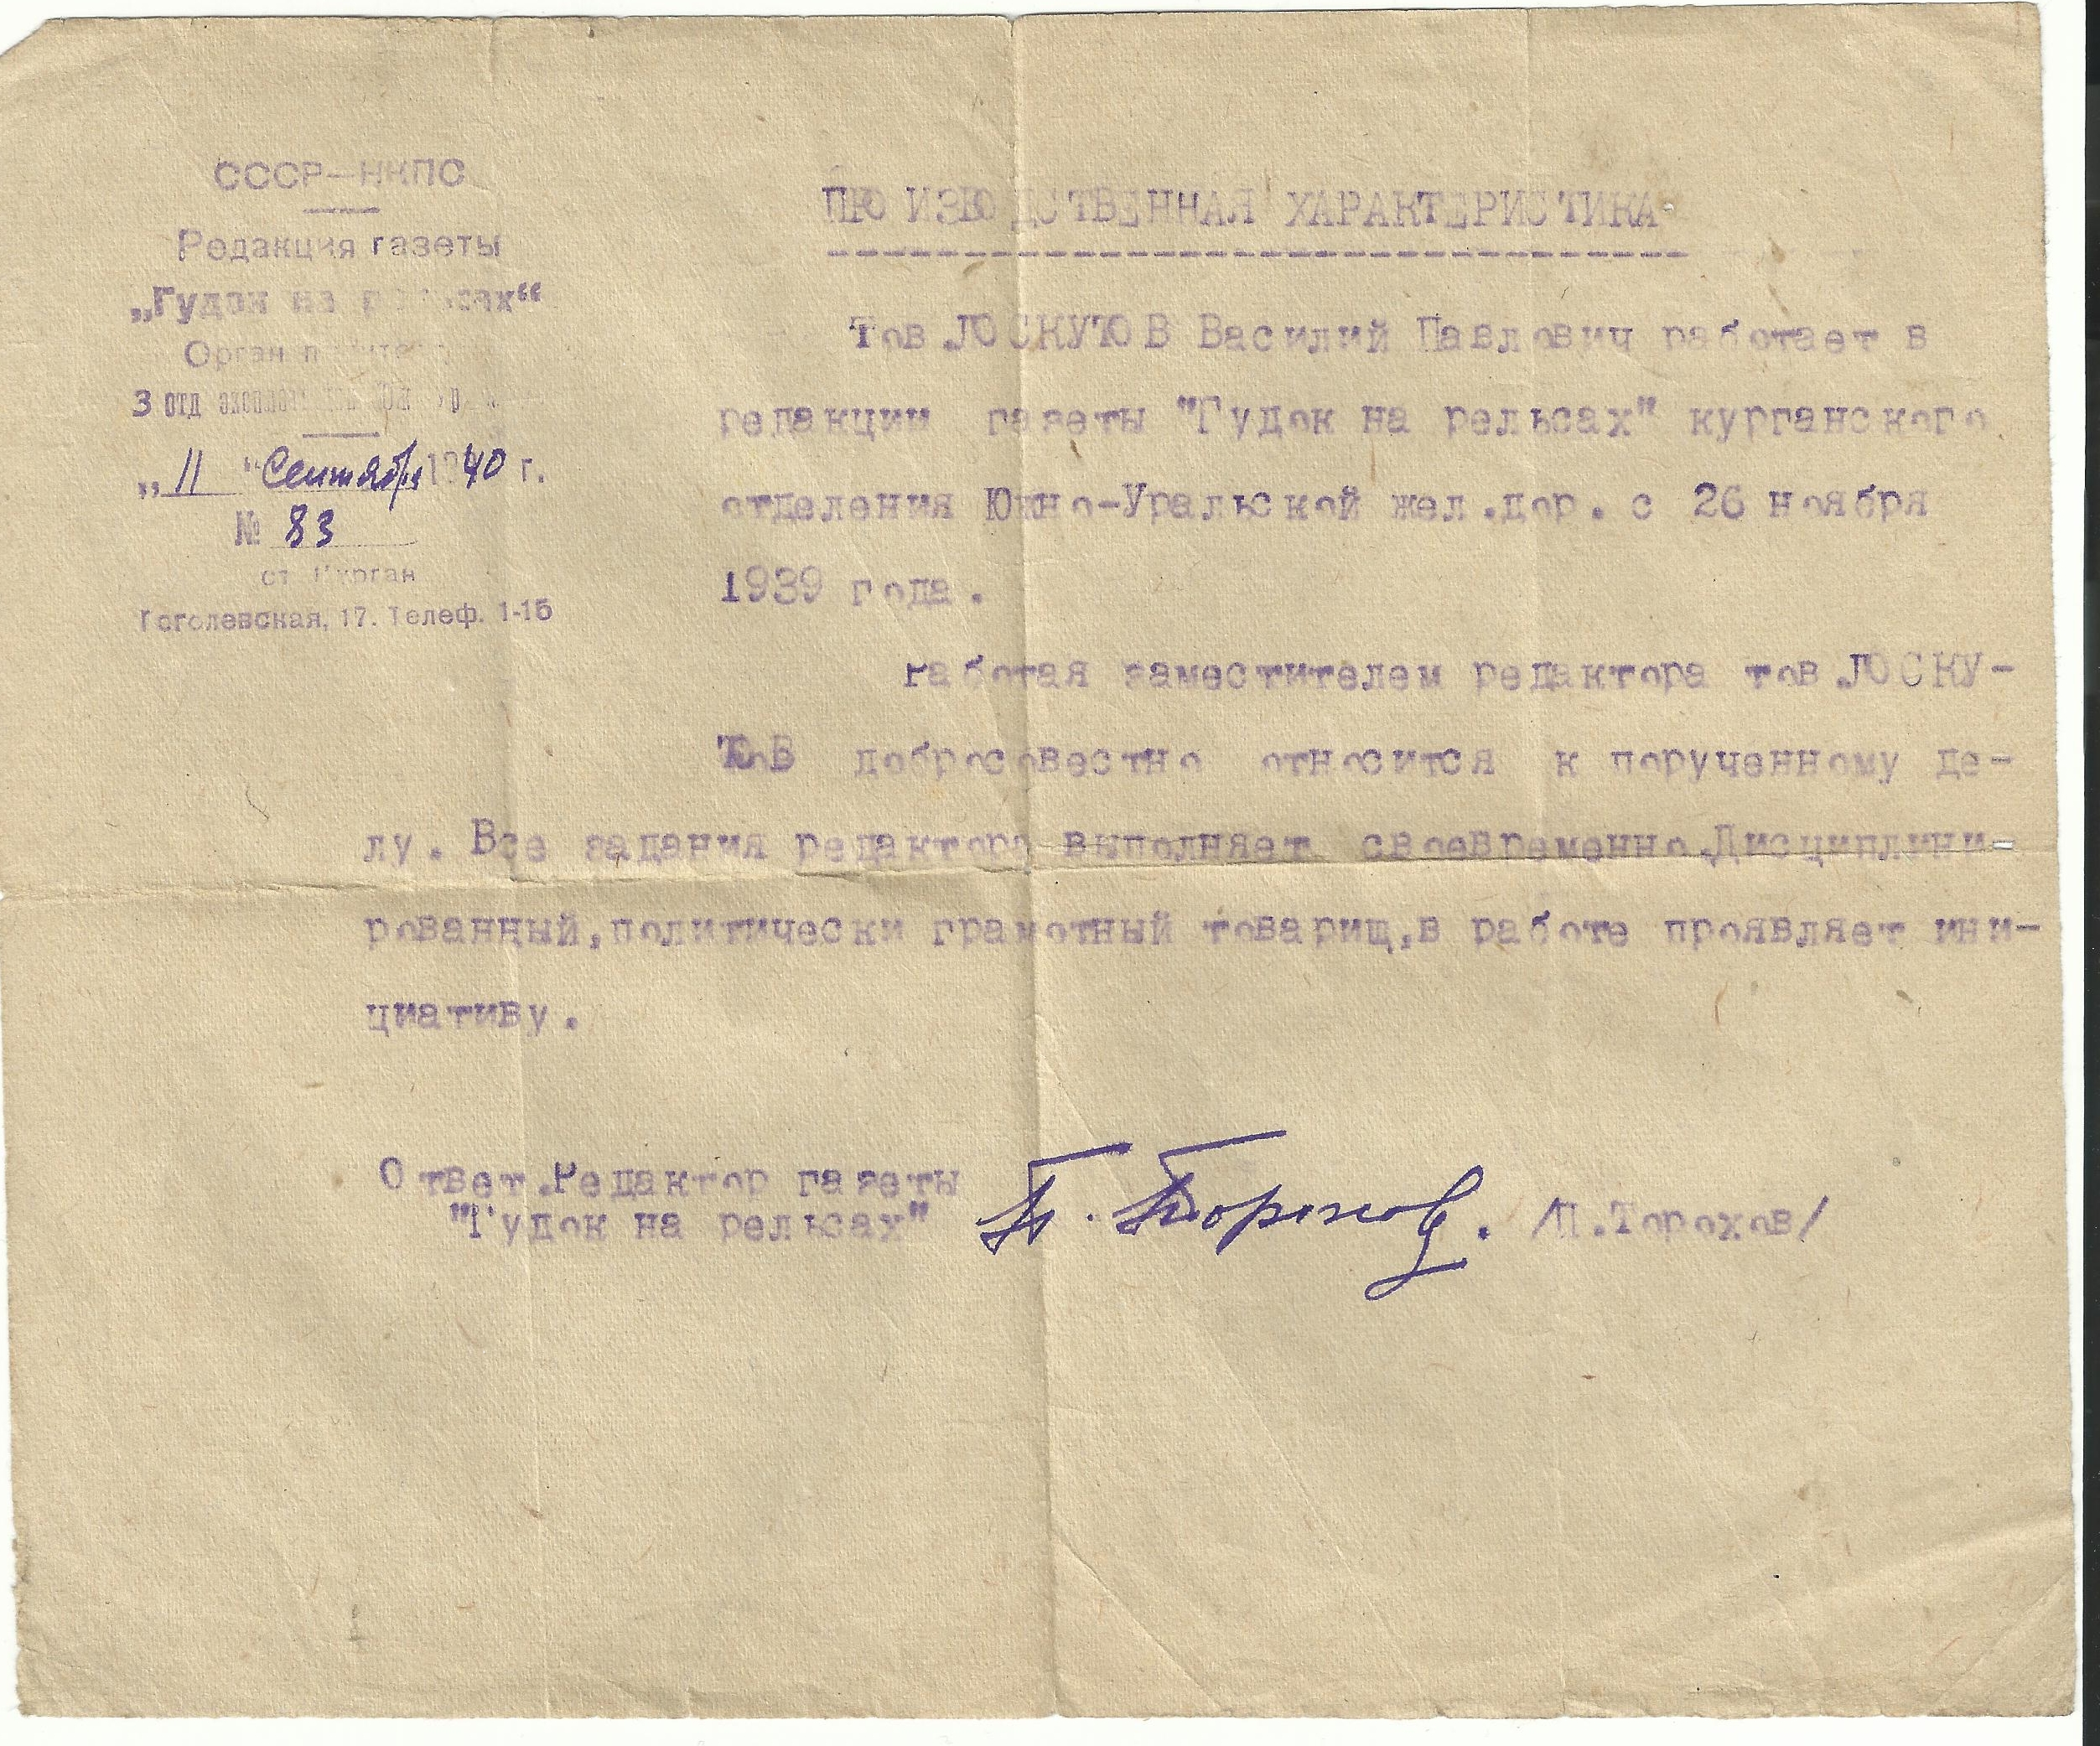 СССР—НКПС
Редакция газеты
„Гудок на рельсах“
Орган
3 отд
„ 11 “ Сентября 1940 г.
№ 83
ст. Курган
Гоголевская, 17. Телеф. 1-15
ПРОИЗВОДСТВЕННАЯ ХАРАКТЕРИСТИКА
Тов.ЛОСКУТОВ Василий Павлович работает в
редакции газеты "Гудок на рельсах" курганского
отделения Южно-Уральской жел.дор. с 26 ноября
1939 года.
Работая заместителем редактора тов.ЛОСКУ-
ТоВ добросовестно относится к порученному де-
лу. Все задания редактора выполняет своевременно.Дисциплини-
рованный,политически грамотный товарищ,в работе проявляет ини-
циативу.
Ответ.Редактор газеты
"Гудок на рельсах" П. Торохов. /П.Торохов/